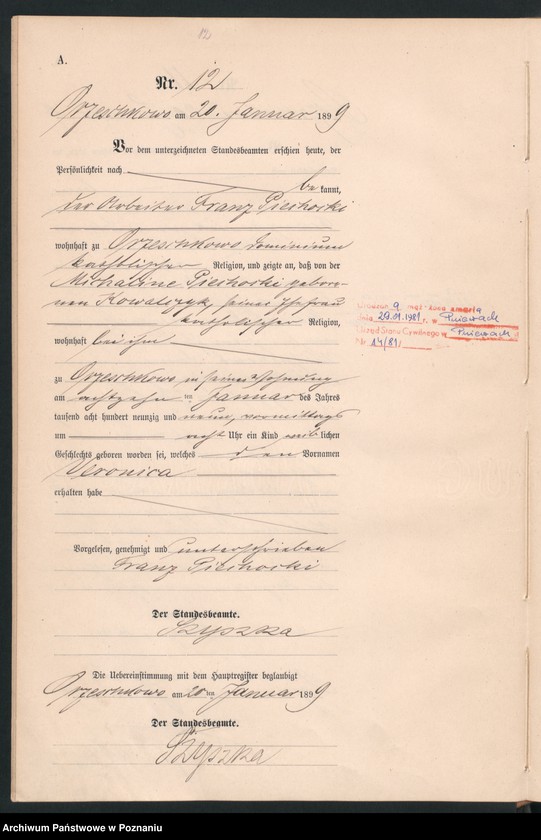 12
A.
Nr. 12
Orzeschkowo am 20. Januar 1899
Vor dem unterzeichneten Standesbeamten erschien heute, der
Persönlichkeit nach
be kannt,
der Arbeiter Franz Piechocki
wohnhaft zu Orzeschkowo Dominium
katholischer Religion, und zeigte an, daß von der
Michaline Piechocki gebore-
nen Kowalczyk, seiner Ehefrau
katholischer Religion,
wohnhaft bei ihm
zu Orzeschkowo in seiner Wohnung
am achtzehn ten Januar des Jahres
tausend acht hundert neunzig und neun, vormittags
um acht Uhr ein Kind weib lichen
Geschlechts geboren worden sei, welches den Vornamen
Veronica
erhalten habe
Vorgelesen, genehmigt und unterschrieben
Franz Piechocki
Der Standesbeamte.
Szyszka
Die Uebereinstimmung mit dem Hauptregister beglaubigt
Orzeschkowo am 20 ten Januar 1899
Der Standesbeamte.
Szyszka
zmarła
dnia 29.01.1981 r. w Pniewach
Urząd Stanu Cywilnego w Pniewach
Nr 14/81
Archiwum Państwowe w Poznaniu